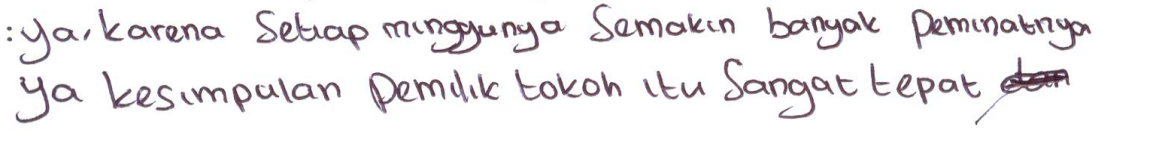 : ya, karena Setiap minggunya Semakin banyak Peminatnya
ya kesimpulan Pemilik tokoh itu Sangat tepat